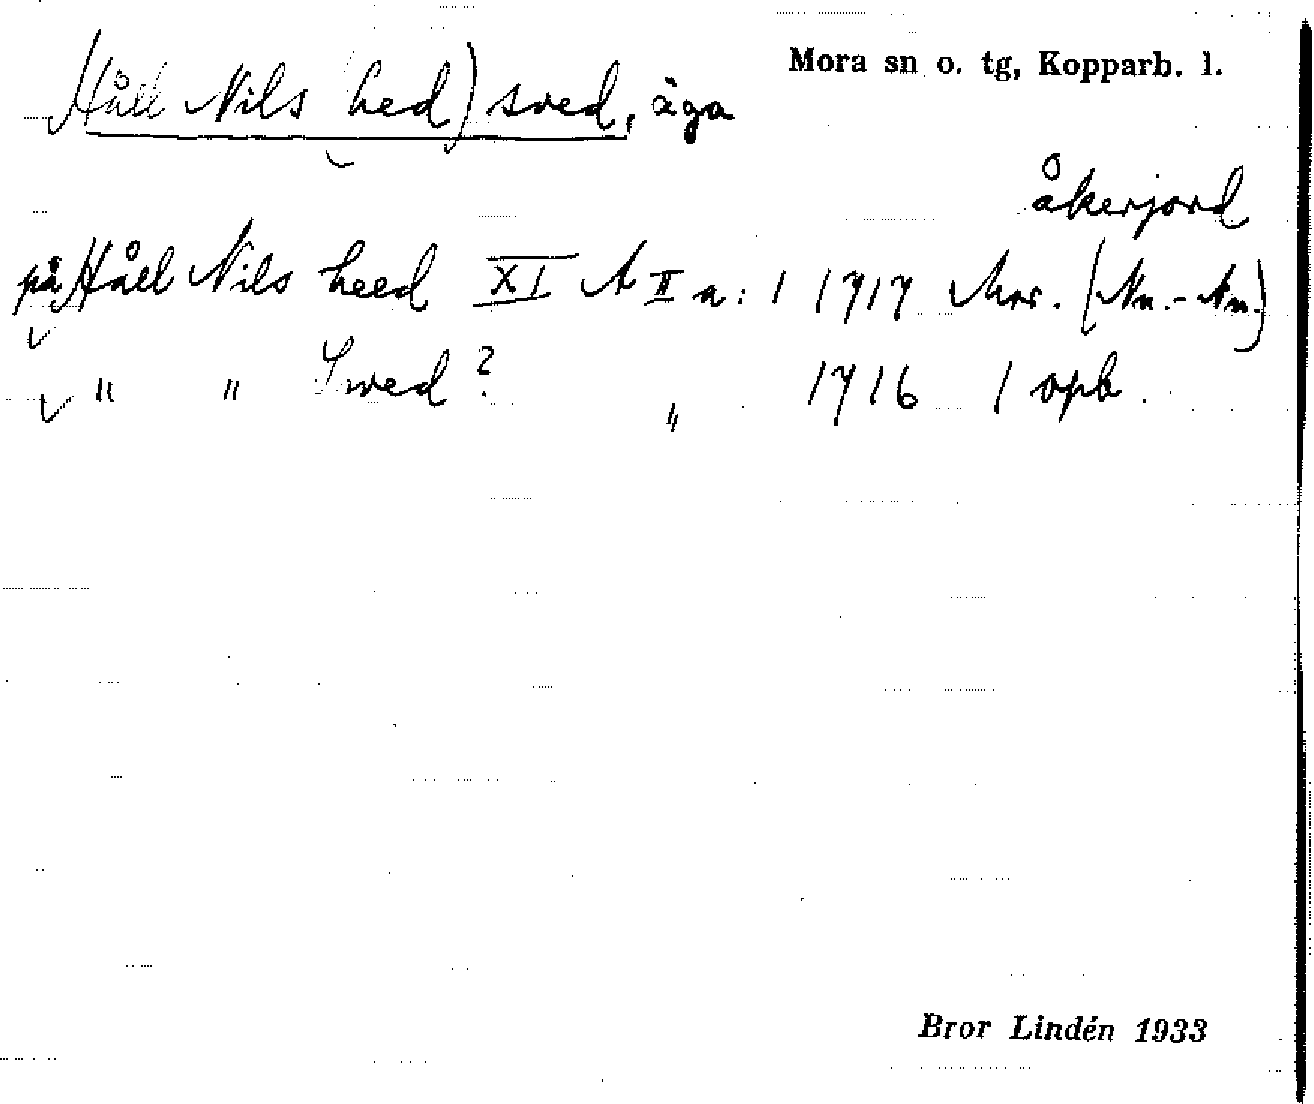 (Håll Nils hed) sved, äga
Mora sn o. tg, Kopparb. l.
åkerjord
på Håll Nils heed XI A II a: 1 1717 Mor. (Nn.-Nn.)
" " Swed? " 1716 1 opb.
Bror Lindén 1933